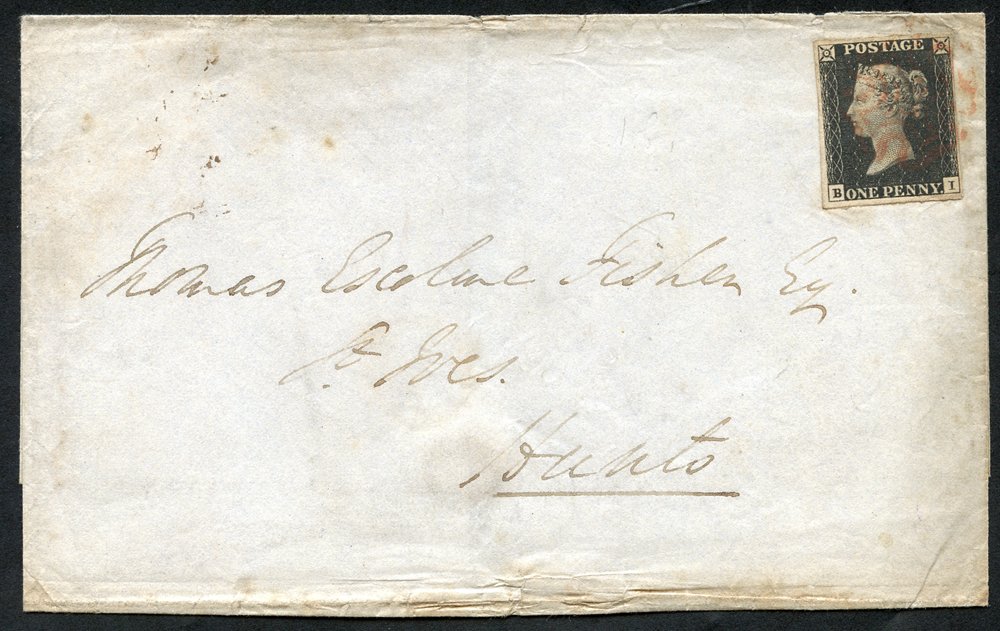 POSTAGE
B ONE PENNY. I
Thomas Escolme Fisher Esq.
St. Ives.
Hunts